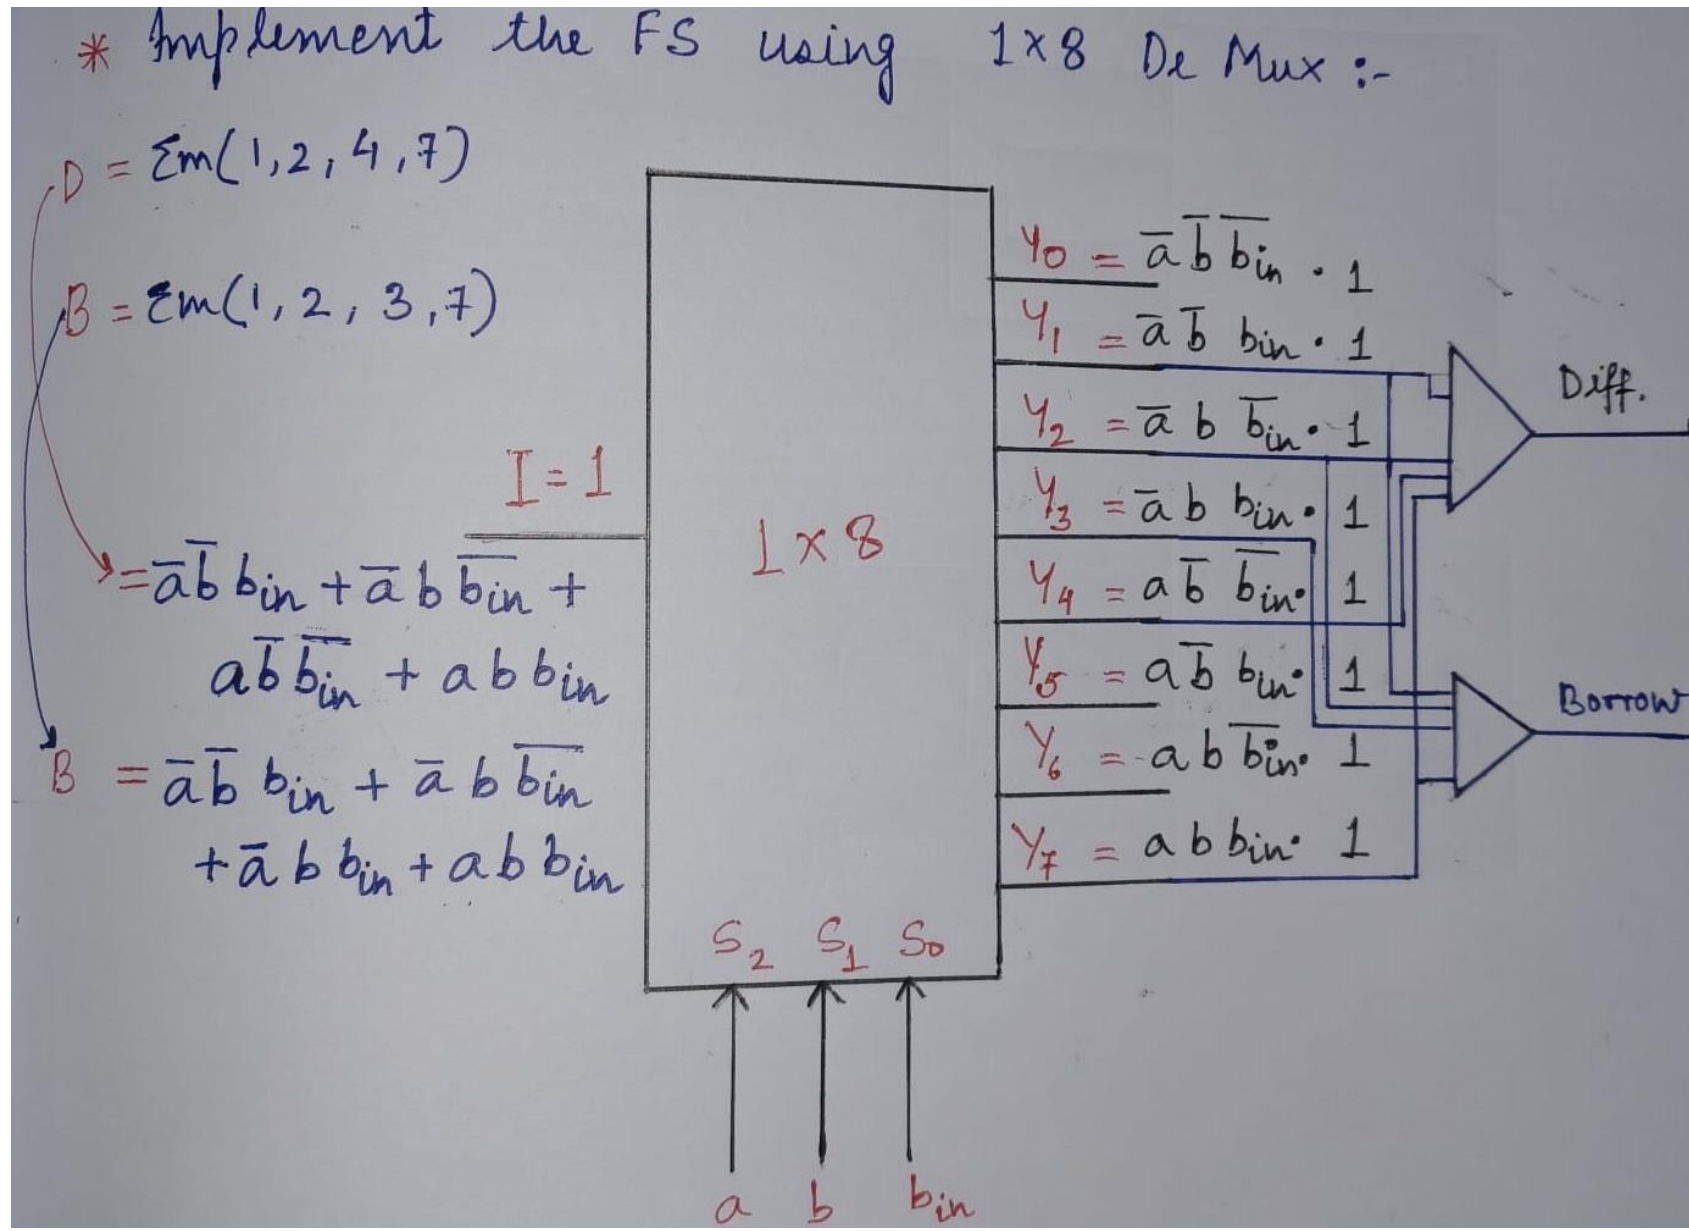 * Implement the FS using 1×8 De Mux :-
D = Σm(1,2,4,7)
B = Σm(1,2,3,7)
= a̅ b̅ bin + a̅ b b̅i̅n̅ +
a b̅ b̅i̅n̅ + a b bin
B = a̅ b̅ bin + a̅ b b̅i̅n̅
+ a̅ b bin + a b bin
I = 1
1×8
S2 S1 S0
a b bin
Y0 = a̅ b̅ b̅i̅n̅ · 1
Y1 = a̅ b̅ bin · 1
Y2 = a̅ b b̅i̅n̅ · 1
Y3 = a̅ b bin · 1
Y4 = a b̅ b̅i̅n̅ · 1
Y5 = a b̅ bin · 1
Y6 = a b b̅i̅n̅ · 1
Y7 = a b bin · 1
Diff.
Borrow